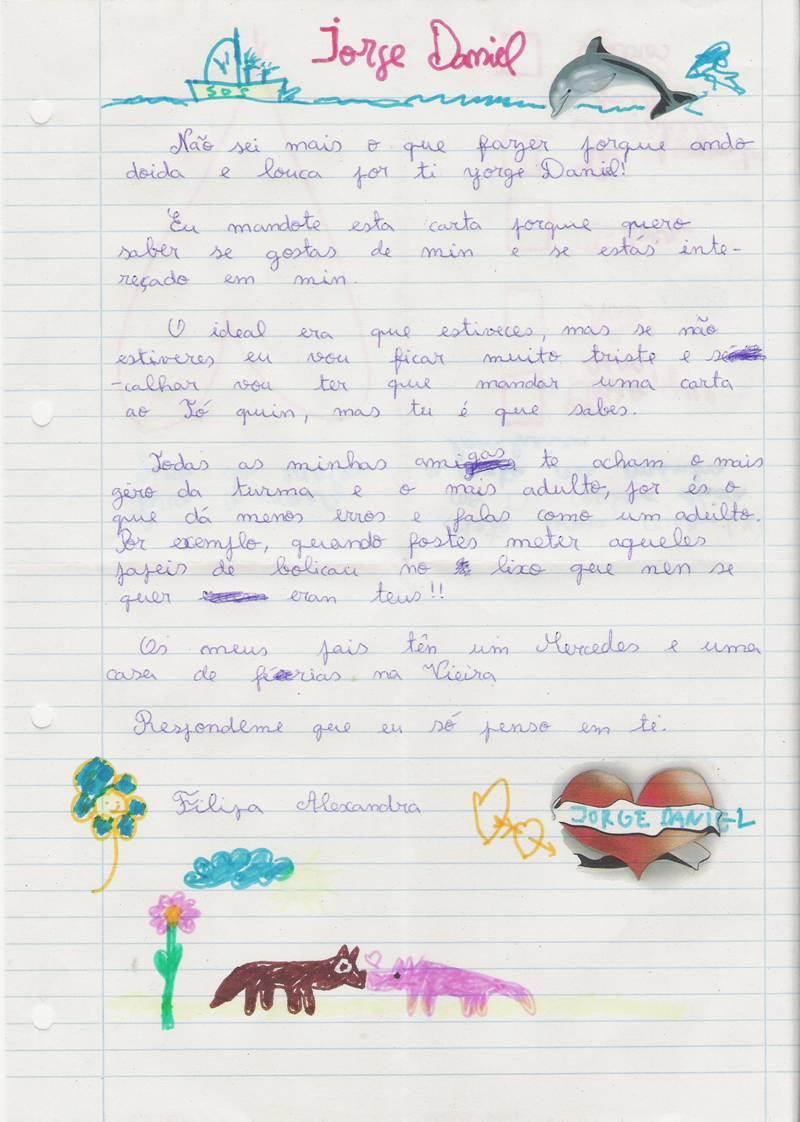 SOS
Jorge Daniel
Não sei mais o que fazer porque ando
doida e louca por ti yorge Daniel!
Eu mandote esta carta porque quero
saber se gostas de min e se estás inte-
reçado em min.
O ideal era que estiveces, mas se não
estiveres eu vou ficar muito triste e se
-calhar vou ter que mandar uma carta
ao Tó quin, mas tu é que sabes.
Todas as minhas amigas te acham o mais
géro da turma e o mais adulto, por és o
que dá menos erros e falas como um adulto.
Por exemplo, quando fostes meter aqueles
papeis de bolicau no lixo que nen se
quer eran teus!!
Os meus pais tên um Mercedes e uma
casa de férias na Vieira
Respondeme que eu só penso em ti.
Filipa Alexandra
JORGE DANIEL